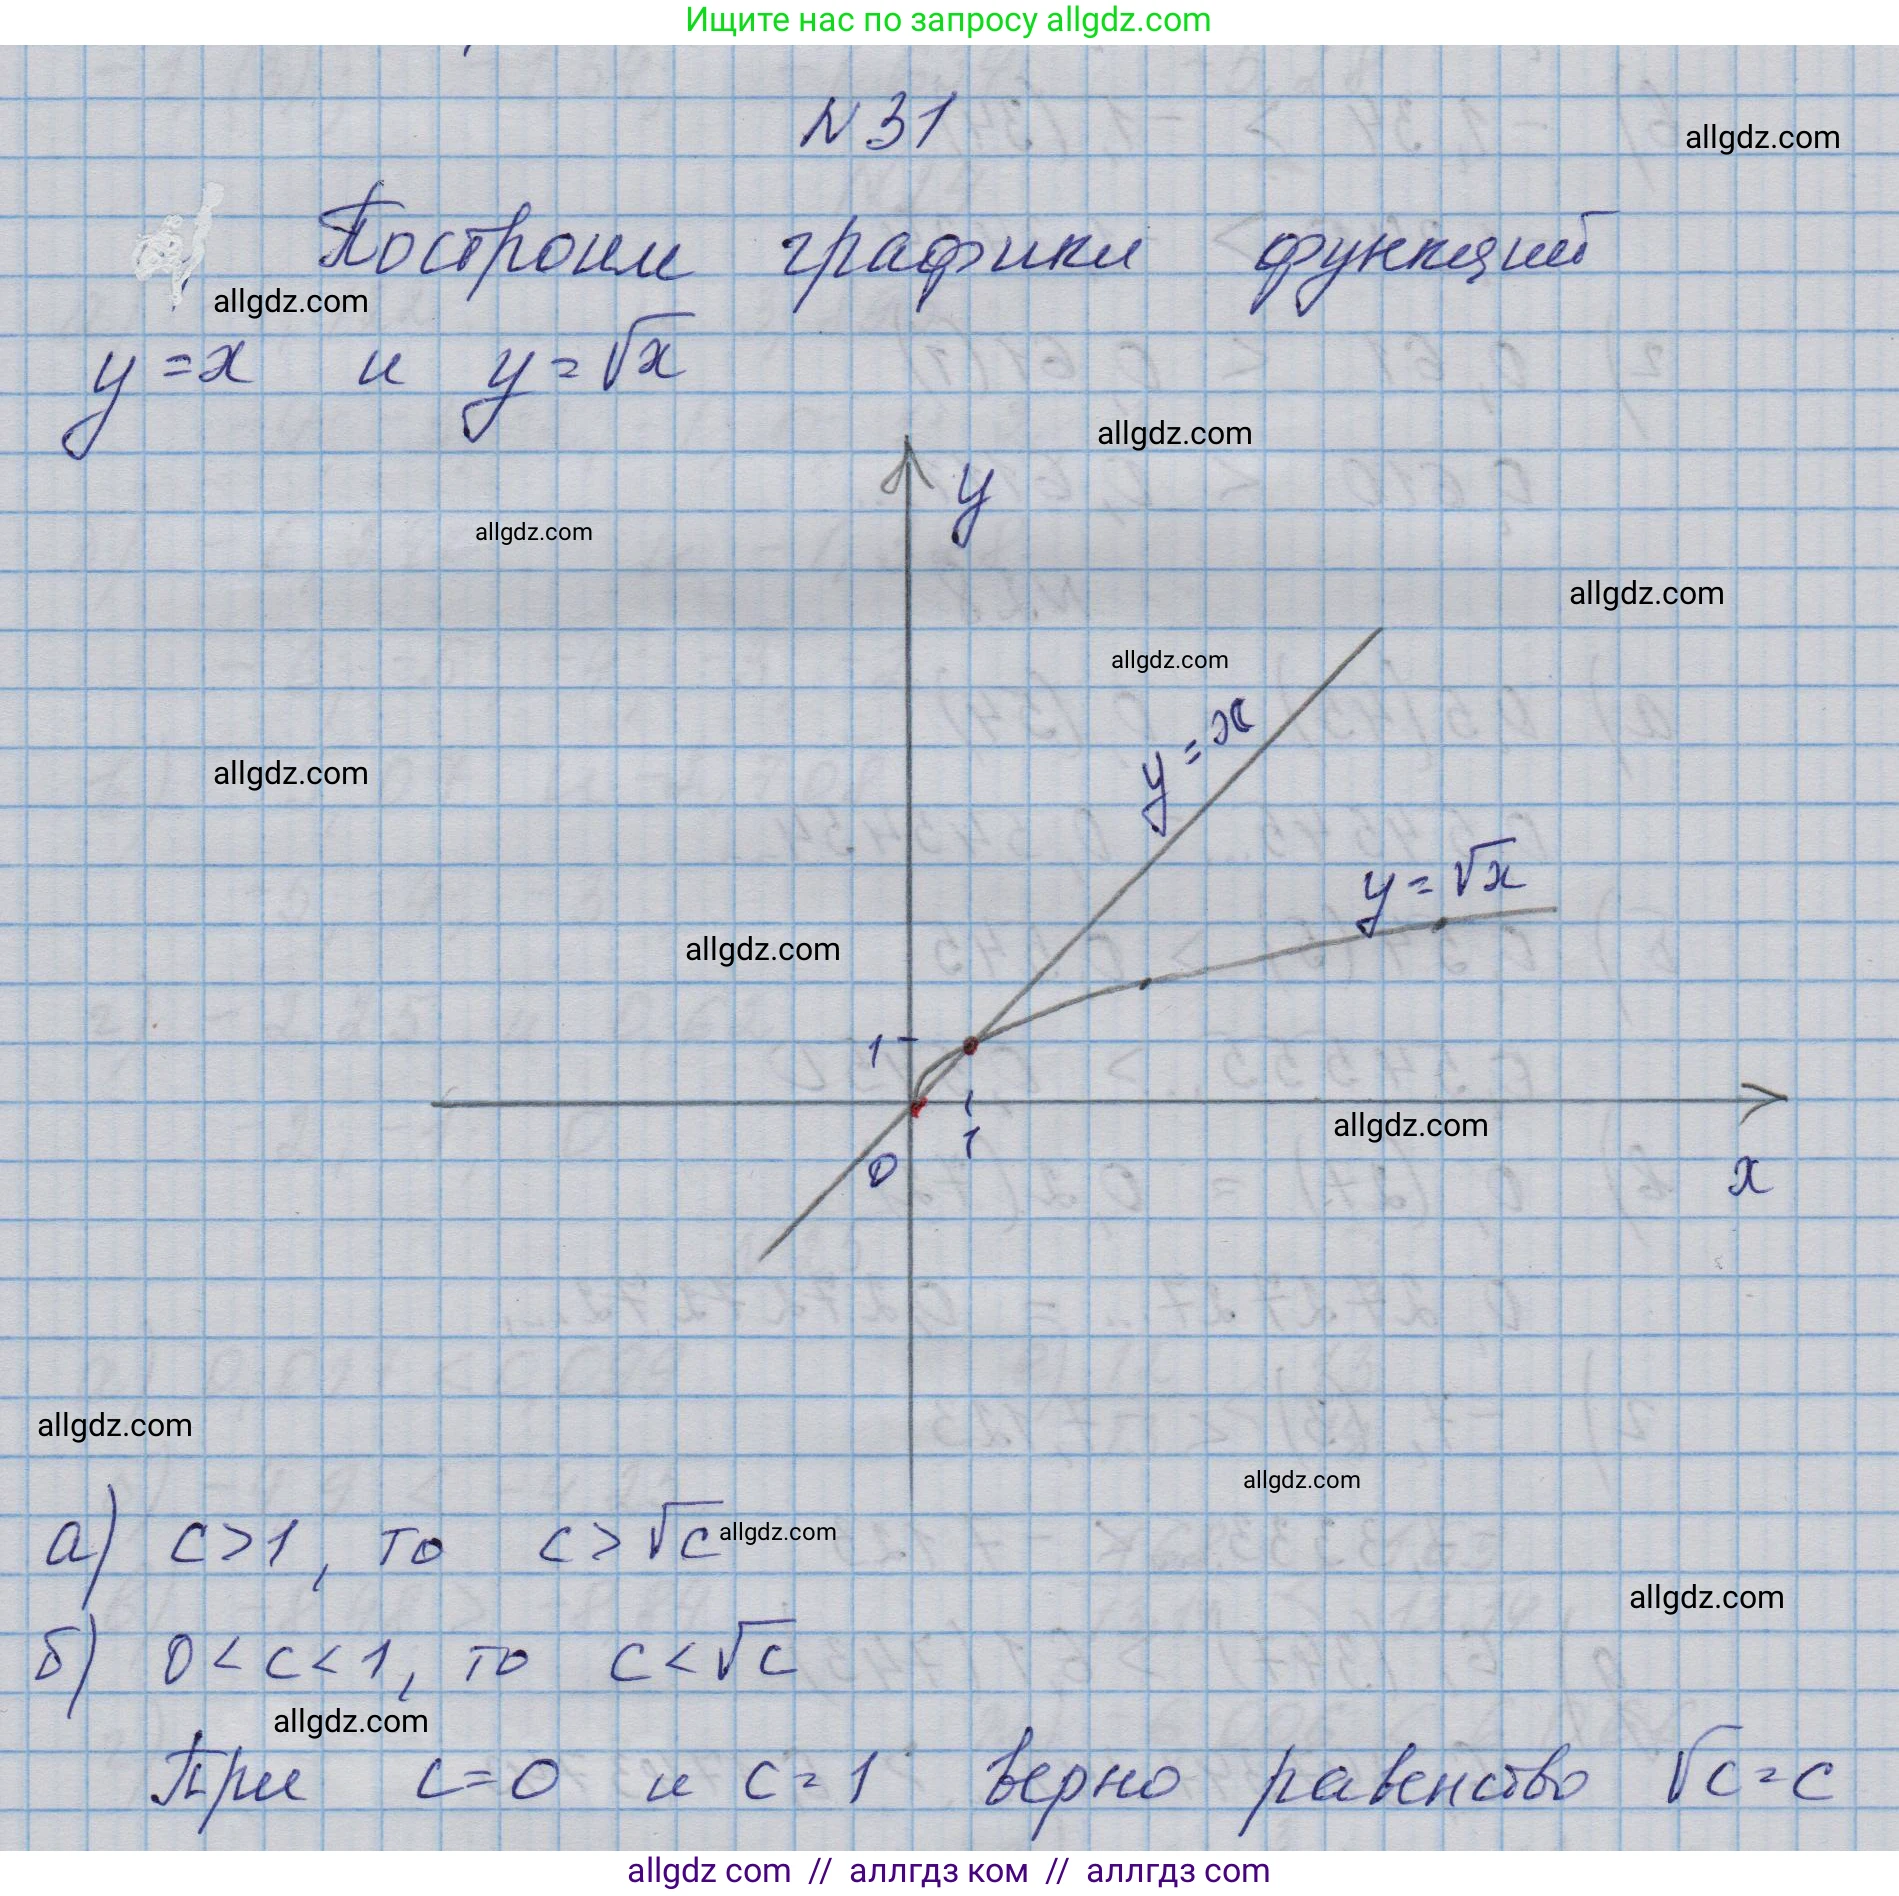 Ищите нас по запросу allgdz.com
N 31
allgdz.com
Построим графики функций
allgdz.com
y = x и y = √x
allgdz.com
y
allgdz.com
allgdz.com
allgdz.com
y = x
allgdz.com
y = √x
allgdz.com
1
allgdz.com
0
1
x
allgdz.com
allgdz.com
а) c > 1, то c > √c
allgdz.com
allgdz.com
б) 0 < c < 1, то c < √c
allgdz.com
При c = 0 и c = 1 верно равенство √c = c
allgdz com // аллгдз ком // аллгдз com